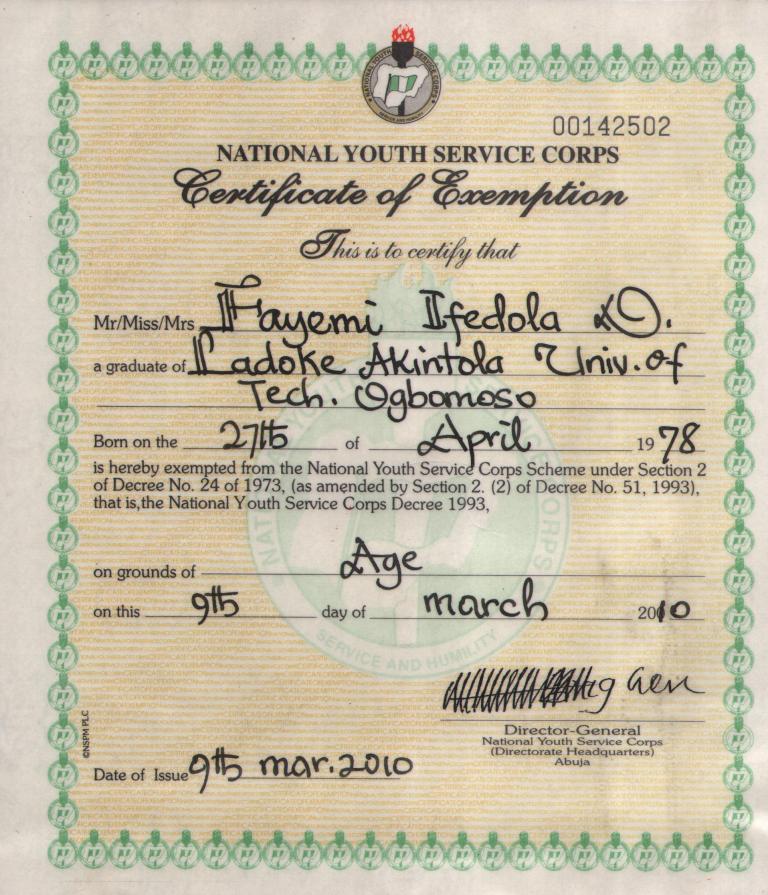 00142502
NATIONAL YOUTH SERVICE CORPS
Certificate of Exemption
This is to certify that
Mr/Miss/Mrs Fayemi Ifedola O.
a graduate of Ladoke Akintola Univ. of
Tech. Ogbomoso
Born on the 27th of April 1978
is hereby exempted from the National Youth Service Corps Scheme under Section 2
of Decree No. 24 of 1973, (as amended by Section 2. (2) of Decree No. 51, 1993),
that is,the National Youth Service Corps Decree 1993,
on grounds of Age
on this 9th day of march 2010
SERVICE AND HUMILITY
Director-General
National Youth Service Corps
(Directorate Headquarters)
Abuja
Date of Issue 9th mar. 2010
©NSPM PLC